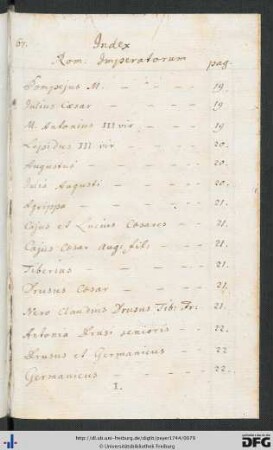 67. Index
Rom: Imperatorum pag.
Pompejus M. — — — — 19.
Julius Cæsar — — — — 19.
M. Antonius III vir — — — 19.
Lepidus III vir — — — 20.
Augustus — — — — 20.
Julia Augusti — — — — 20.
Agrippa — — — — 21.
Cajus et Lucius Cæsares — — 21.
Cajus Cæsar Aug: fil: — — 21.
Tiberius — — — — 21.
Drusus Cæsar — — — — 21.
Nero Claudius Drusus Tib: Fr: 21.
Antonia Drusi senioris — — 22.
Drusus et Germanicus — — 22
Germanicus — — — — 22.
I.
http://dl.ub.uni-freiburg.de/diglit/joyer1744/0070
Universitätsbibliothek Freiburg
gefördert durch DFG